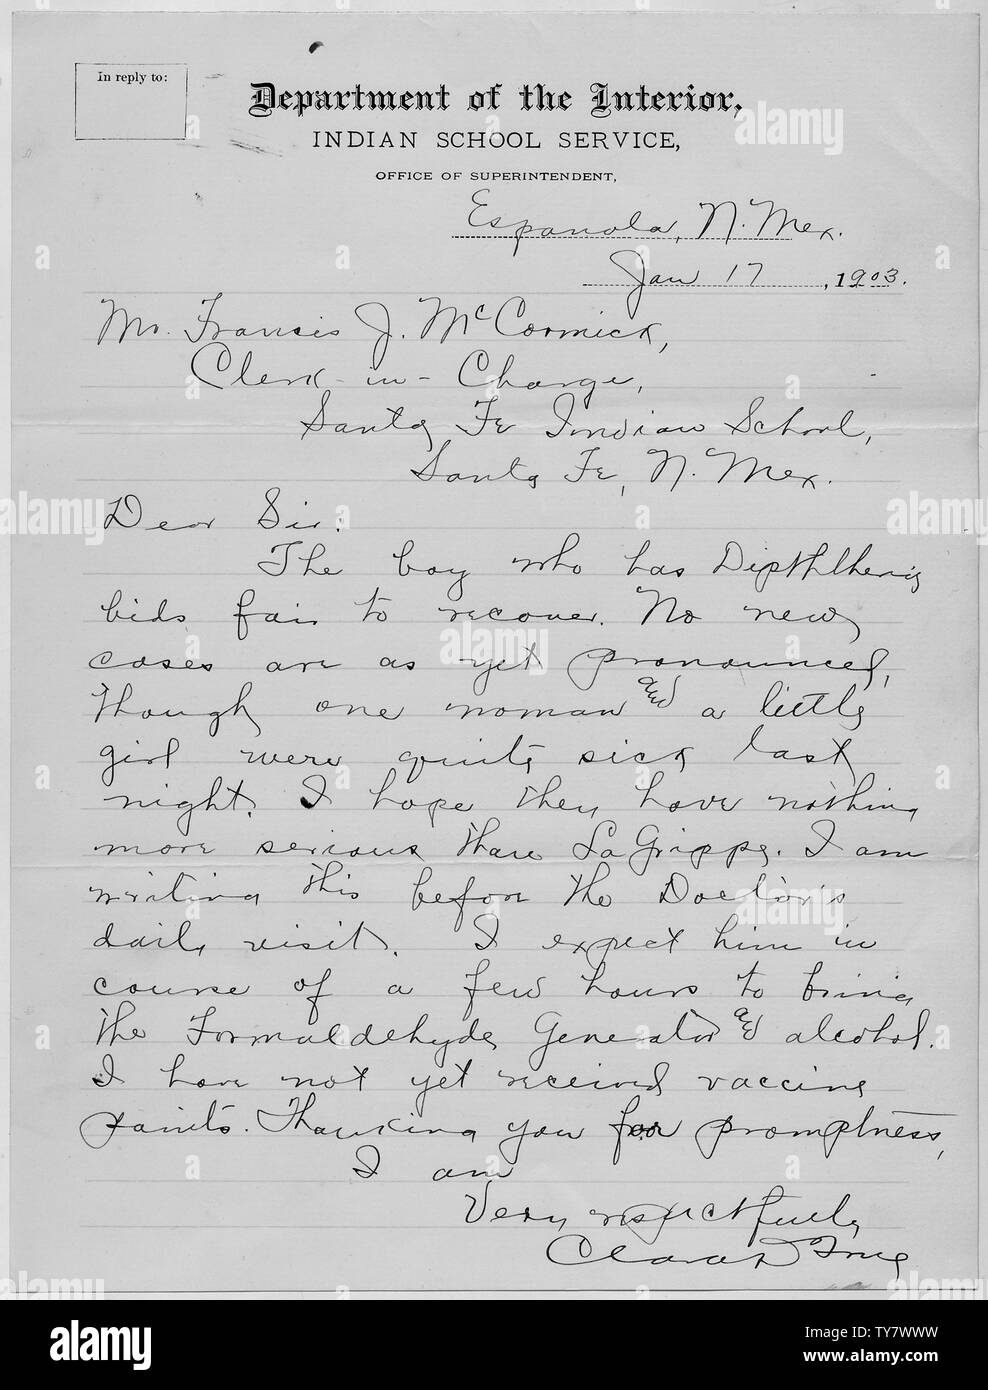 In reply to:
Department of the Interior,
INDIAN SCHOOL SERVICE,
OFFICE OF SUPERINTENDENT,
Espanola, N. Mex.
Jan 17, 1903.
Mr. Francis J. McCormick,
Clerk-in-Charge,
Santa Fe Indian School,
Santa Fe, N. Mex.
Dear Sir:
The boy who has Dipththeria
bids fair to recover. No new
cases are as yet pronounced,
though one woman and a little
girl were quite sick last
night. I hope they have nothing
more serious than La Grippe. I am
writing this before the Doctor's
daily visit. I expect him in
course of a few hours to bring
the Formaldehyde Generator and alcohol.
I have not yet received vaccine
points. Thanking you for promptness,
I am
Very respectfully
Clara D True
alamy
Image ID: TY7WWW
www.alamy.com